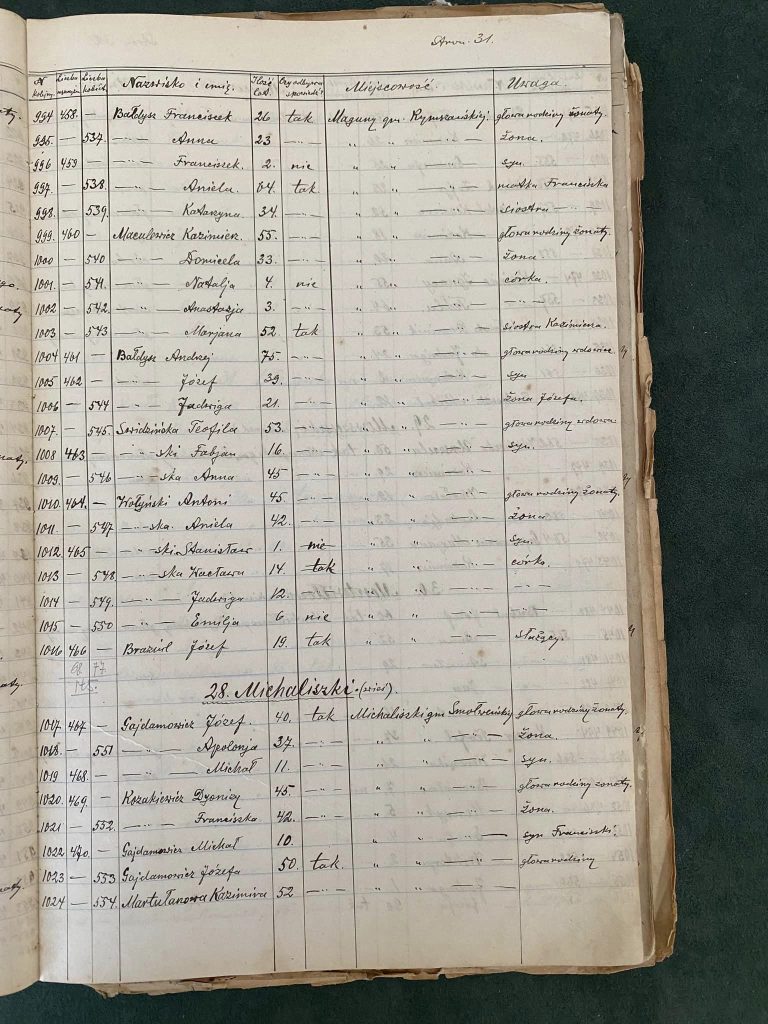 Stron. 31.
N kolejny. Liczba mężczyzn Liczba kobiet. Nazwisko i imię. Ilość lat. Czy odbywa spowiedź? Miejscowość. Uwaga
994 458. — Bałdysz Franciszek 26 tak Maguny gm. Rymszańskiej. głowa rodziny żonaty.
995. — 537. —〃— Anna 23 —〃— 〃 〃 —〃— żona.
996 459 — —〃— Franciszek. 2. nie 〃 〃 —〃— syn.
997. — 538. —〃— Aniela. 64. tak 〃 〃 —〃— matka Franciszka
998. — 539. —〃— Katarzyna 34. —〃— 〃 〃 —〃— siostra —〃—
999. 460 — Maculewicz Kazimierz. 55. —〃— 〃 〃 —〃— głowa rodziny żonaty.
1000 — 540 —〃— Domicela 33. —〃— 〃 〃 —〃— żona.
1001. — 541. —〃— Natalja 4. nie 〃 〃 —〃— córka.
1002 — 542. —〃— Anastazja 3. —〃— 〃 〃 —〃— —〃—
1003 — 543 —〃— Marjana 52. tak 〃 〃 —〃— siostra Kazimierza.
1004 461 — Bałdysz Andrzej 75. —〃— 〃 〃 —〃— głowa rodziny wdowiec
1005 462 — —〃— Józef 39. —〃— 〃 〃 —〃— syn
1006 — 544 —〃— Jadwiga 21. —〃— 〃 〃 —〃— żona Józefa.
1007. — 545. Swidzińska Teofila 53. —〃— 〃 〃 —〃— głowa rodziny wdowa
1008 463 — —〃— ski Fabjan 16. —〃— 〃 〃 —〃— syn.
1009. — 546 —〃— ska Anna 45 —〃— 〃 〃 —〃—
1010. 464. — Wołyński Antoni 45. —〃— 〃 〃 —〃— głowa rodziny żonaty.
1011. — 547 —〃— ska. Aniela 42. —〃— 〃 〃 —〃— żona
1012. 465 — —〃— ski Stanisław 1. nie 〃 〃 —〃— syn.
1013 — 548. —〃— ska Wacława 14. tak 〃 〃 —〃— córka.
1014 — 549. —〃— Jadwiga 12. —〃— 〃 〃 —〃— —〃—
1015 — 550 —〃— Emilja 6 nie 〃 〃 —〃—
1016 466 — Braziul Józef 19. tak 〃 〃 —〃— służący.
68 77
145.
28. Michaliszki. (wieś).
1017 467 — Gajdamowicz Józef. 40. tak Michaliszki gm Smołweńskiej głowa rodziny żonaty.
1018. — 551 —〃— Apolonja 37. —〃— 〃 〃 —〃— żona.
1019 468. — —〃— Michał 11. —〃— 〃 〃 —〃— syn.
1020. 469. — Kozakiewicz Dyonizy 45. —〃— 〃 〃 —〃— głowa rodziny żonaty.
1021 — 552. —〃— Franciszka 42. —〃— 〃 〃 —〃— żona.
1022 470. — Gajdamowicz Michał 10. —〃— 〃 〃 —〃— syn Franciszki.
1023 — 553 Gajdamowicz Józefa 50. tak. 〃 〃 —〃— głowa rodziny
1024 — 554. Martułanowa Kazimira 52 —〃— 〃 〃 —〃—